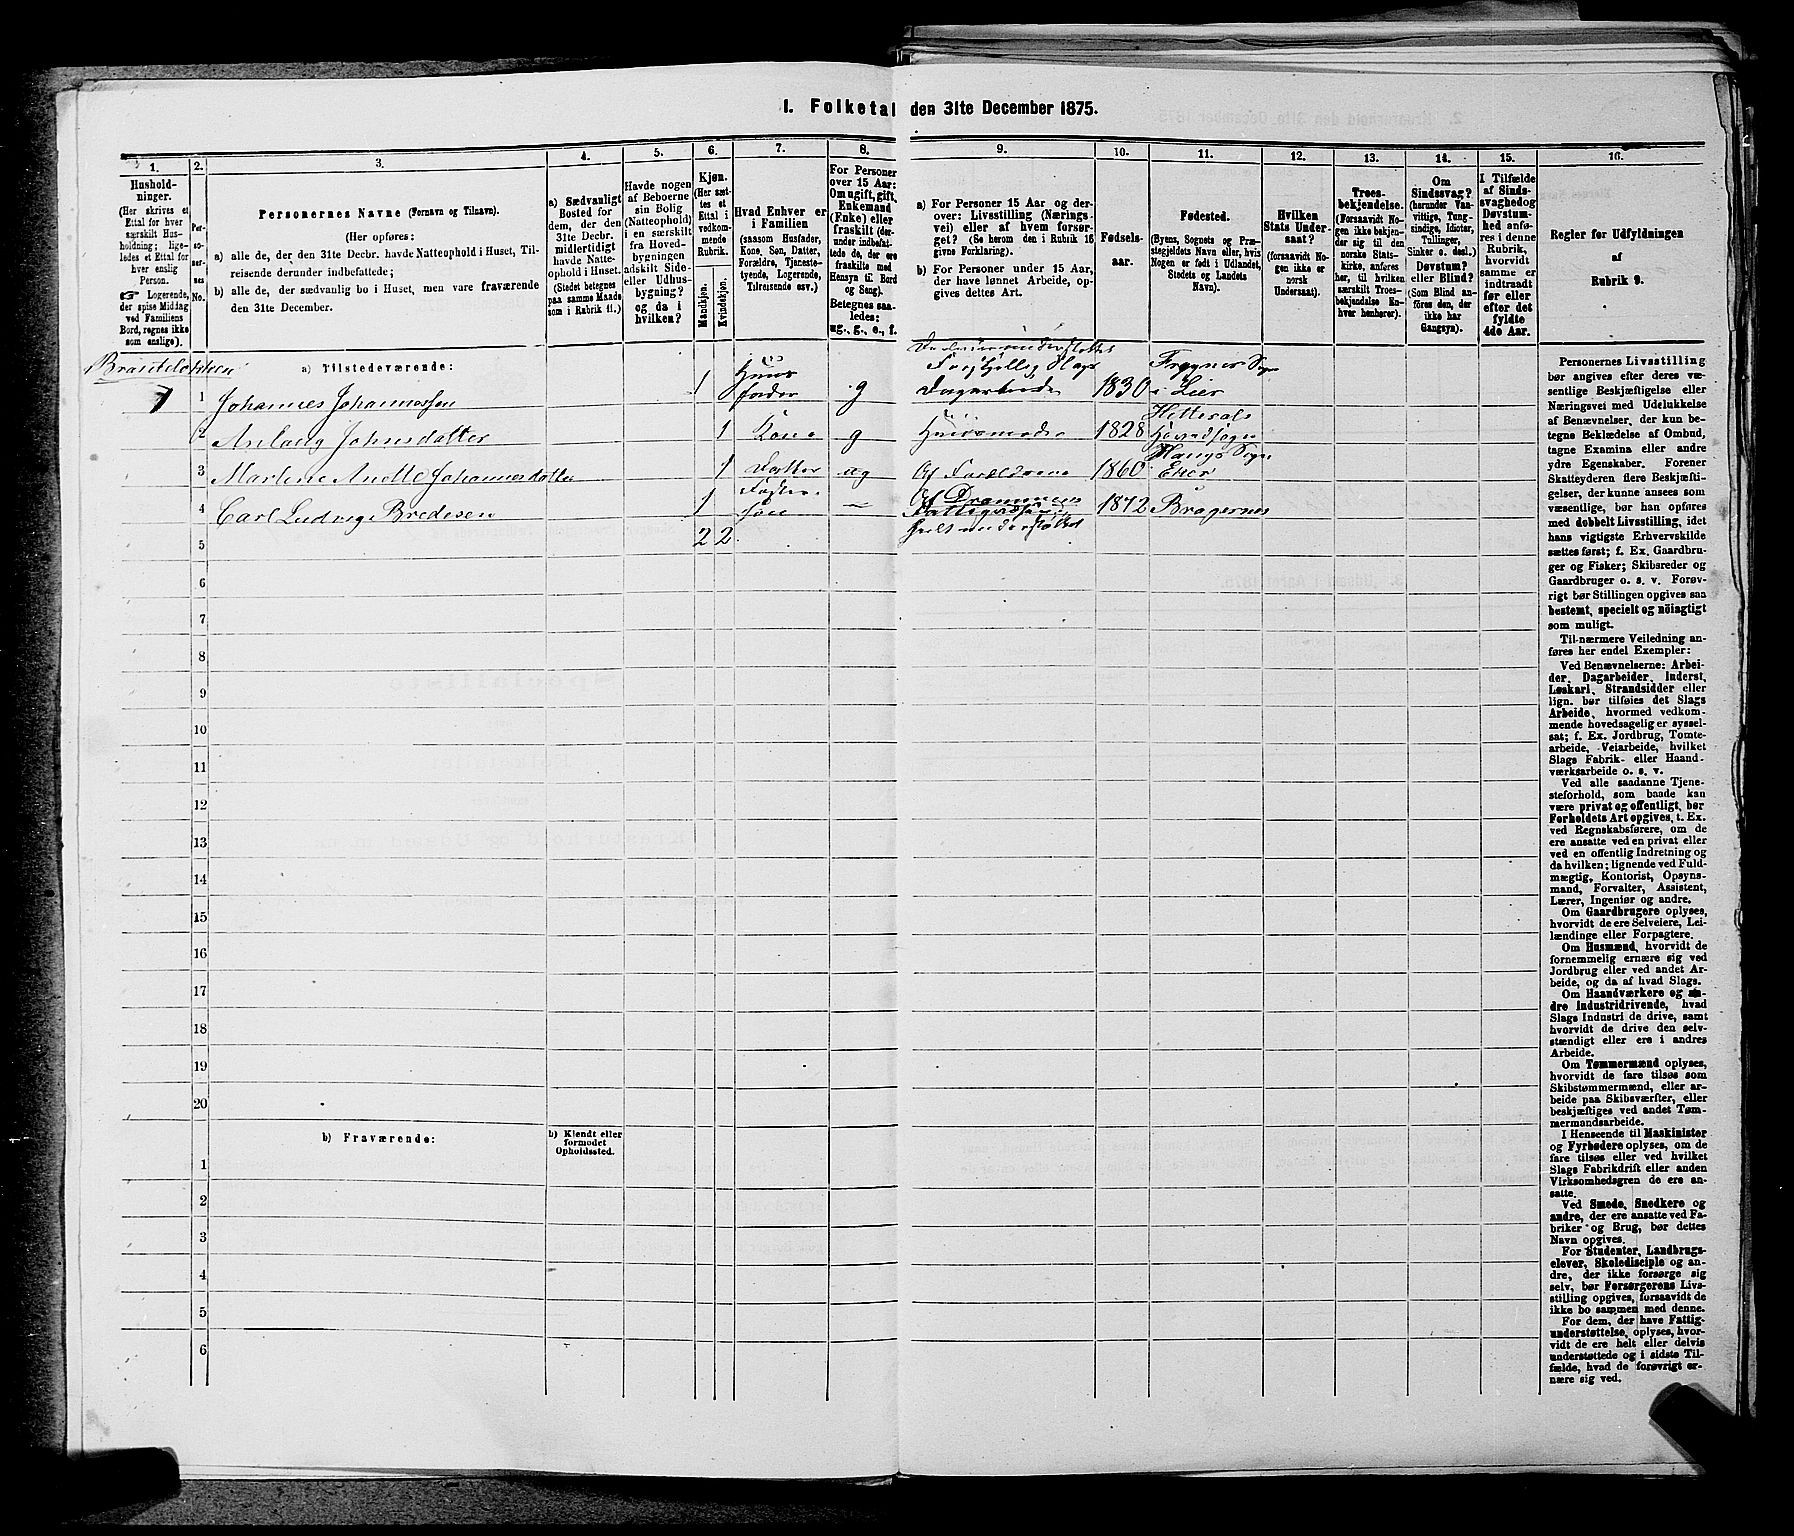 I. Folketal den 31te December 1875.
1.
2.
3.
4.
5.
6.
7.
8.
9.
10.
11.
12.
13.
14.
15.
16.
Hushold-
ninger.
(Her skrives et
Ettal for hver
særskilt Hus-
holdning; lige-
ledes et Ettal
for hver
enslig
Person.
Logerende,
der spise Middag
ved Familiens
Bord, regnes ikke
som enslige).
Per-
so-
ner-
nes
No.
Personernes Navne (Fornavn og Tilnavn).
(Her opføres:
a) alle de, der den 31te Decbr. havde Natteophold i Huset, Til-
reisende derunder indbefattede;
b) alle de, der sædvanlig bo i Huset, men vare fraværende
den 31te December.
a) Sædvanligt
Bosted for
dem, der den
31te Decbr.
midlertidigt
havde Natte-
ophold i Huset.
(Stedet betegnes
paa samme Maade
som i Rubrik 11.)
Havde nogen
af Beboerne
sin Bolig
(Natteophold)
i en særskilt
fra Hoved-
bygningen
adskilt Side-
eller Udhus-
bygning?
og da i
hvilken?
Kjøn.
(Her sæt-
tes et
Ettal i
vedkom-
mende
Rubrik.
Mandkjøn.
Kvindekjøn.
Hvad Enhver er
i Familien
(saasom Husfader,
Kone, Søn, Datter,
Forældre, Tjeneste-
tyende, Logerende,
Tilreisende osv.)
For Personer
over 15 Aar:
Om ugift, gift,
Enkemand
(Enke) eller
fraskilt (der-
under indbefat-
tede de, der ere
fraskilte med
Hensyn til Bord
og Seng).
Betegnes saa-
ledes:
ug., g., e., f.
a) For Personer 15 Aar og der-
over: Livsstilling (Nærings-
vei) eller af hvem forsør-
get? (Se herom den i Rubrik 16
givne Forklaring).
b) For Personer under 15 Aar,
der have lønnet Arbeide, op-
gives dettes Art.
Fødsels-
aar.
Fødested.
(Byens, Sognets og Præ-
stegjeldets Navn eller, hvis
Nogen er født i Udlandet,
Stedets og Landets
Navn).
Hvilken
Stats Under-
saat?
(forsaavidt No-
gen ikke er
norsk
Undersaat).
Troes-
bekjendelse.
(Forsaavidt No-
gen ikke bekjen-
der sig til den
norske Stats-
kirke, anføres
her, til hvilken
særskilt Troes-
bekjendelse En-
hver henhører).
Om
Sindssvag?
(herunder Van-
vittige, Tung-
sindige, Idioter,
Tullinger,
Sinker o. desl.)
Døvstum?
eller Blind?
(Som Blind an-
føres den, der
ikke har
Gangsyn).
I Tilfælde
af Sinds-
svaghed og
Døvstum-
hed anfø-
res i denne
Rubrik,
hvorvidt
samme er
indtraadt
før eller
efter det
fyldte
4de Aar.
Regler for Udfyldningen
af
Rubrik 9.
a) Tilstedeværende:
1
1 Johannes Johannessen 1 Huus fader g Dagarbeider 1830 i Lier
2 Anlaug Johnsdatter 1 Kone g 1828 Hitterdals
3 Marlene Anette Johannesdatter 1 Datter ug Af Forældrene 1860 Eker
4 Carl Ludvig Bredesen 1 Foster-søn — Af Drammens 1872 Bragernes
5 2 2 understøttet
6
7
8
9
10
11
12
13
14
15
16
17
18
19
20
b) Fraværende:
b) Kjendt eller
formodet
Opholdssted.
1
2
3
4
5
6
Personernes Livsstilling
bør angives efter deres væ-
sentlige Beskjæftigelse eller
Næringsvei med Udelukkelse
af Benævnelser, der kun be-
tegne Beklædelse af Ombud,
tagne Examina eller andre
ydre Egenskaber. Forener
Skatteyderen flere Beskjæfti-
gelser, der kunne ansees som
væsentlige, bør han opføres
med dobbelt Livsstilling, idet
hans vigtigste Erhvervskilde
sættes først; f. Ex. Gaardbru-
ger og Fisker; Skibsreder og
Gaardbruger o. s. v. Forøv-
rigt bør Stillingen opgives saa
bestemt, specielt og nöiagtigt
som muligt.
Til nærmere Veiledning an-
føres her endel Exempler:
Ved Benævnelserne: Arbei-
der, Dagarbeider, Inderst,
Løskarl, Strandsidder eller
lign. bør tilføies det Slags
Arbeide, hvormed vedkom-
mende hovedsagelig er syssel-
sat; f. Ex. Jordbrug, Tomte-
arbeide, Veiarbeide, hvilket
Slags Fabrik- eller Haand-
værksarbeide o. s. v.
Ved alle saadanne Tjene-
steforhold, som baade kan
være privat og offentligt, bør
Forholdets Art opgives, t. Ex.
ved Regnskabsførere, om de
ere ansatte ved en privat eller
ved en offentlig Indretning og
da hvilken; lignende ved Fuld-
mægtig, Kontorist, Opsyns-
mand, Forvalter, Assistent,
Lærer, Ingeniør og andre.
Om Gaardbrugere oplyses,
hvorvidt de ere Selveiere, Lei-
lændinge eller Forpagtere.
Om Husmænd, hvorvidt de
fornemmelig ernære sig ved
Jordbrug eller ved andet Ar-
beide, og da af hvad Slags.
Om Haandværkere og an-
dre Industridrivende, hvad
Slags Industri de drive, samt
hvorvidt de drive den selv-
stændigt eller ere i andres
Arbeide.
Om Tømmermænd oplyses,
hvorvidt de fare tilsøs som
Skibstømmermænd, eller ar-
beide paa Skibsværfter, eller
beskjæftiges ved andet Tøm-
mermandsarbeide.
I Henseende til Maskinister
og Fyrbødere oplyses, om de
fare tilsøs eller ved hvilket
Slags Fabrikdrift eller anden
Virksomhedsgren de ere an-
satte.
Ved Smede, Snedkere og
andre, der ere ansatte ved Fa-
briker og Brug, bør dettes
Navn opgives.
For Studenter, Landbrugs-
elever, Skoledisciple og an-
dre, der ikke forsørge sig
selv, bør Forsørgerens Livs-
stilling opgives, forsaavidt de
ikke bo sammen med denne.
For dem, der have Fattig-
understøttelse, oplyses, hvor-
vidt de ere helt eller delvis
understøttede og i sidste Til-
fælde, hvad de forøvrigt er-
nære sig ved.